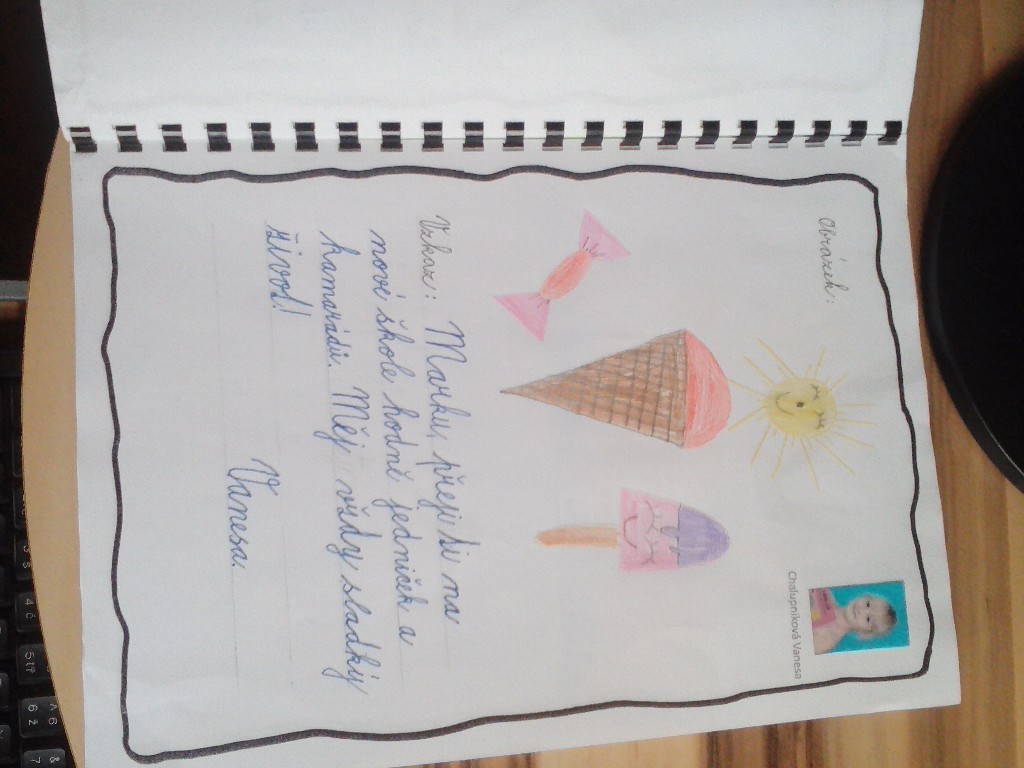 Obrázek:
Chalupníková Vanesa
Vzkaz: Marku, přeji ti na
nové škole hodně jedniček a
kamarádů. Měj vždy sladký
život!
Vanesa.